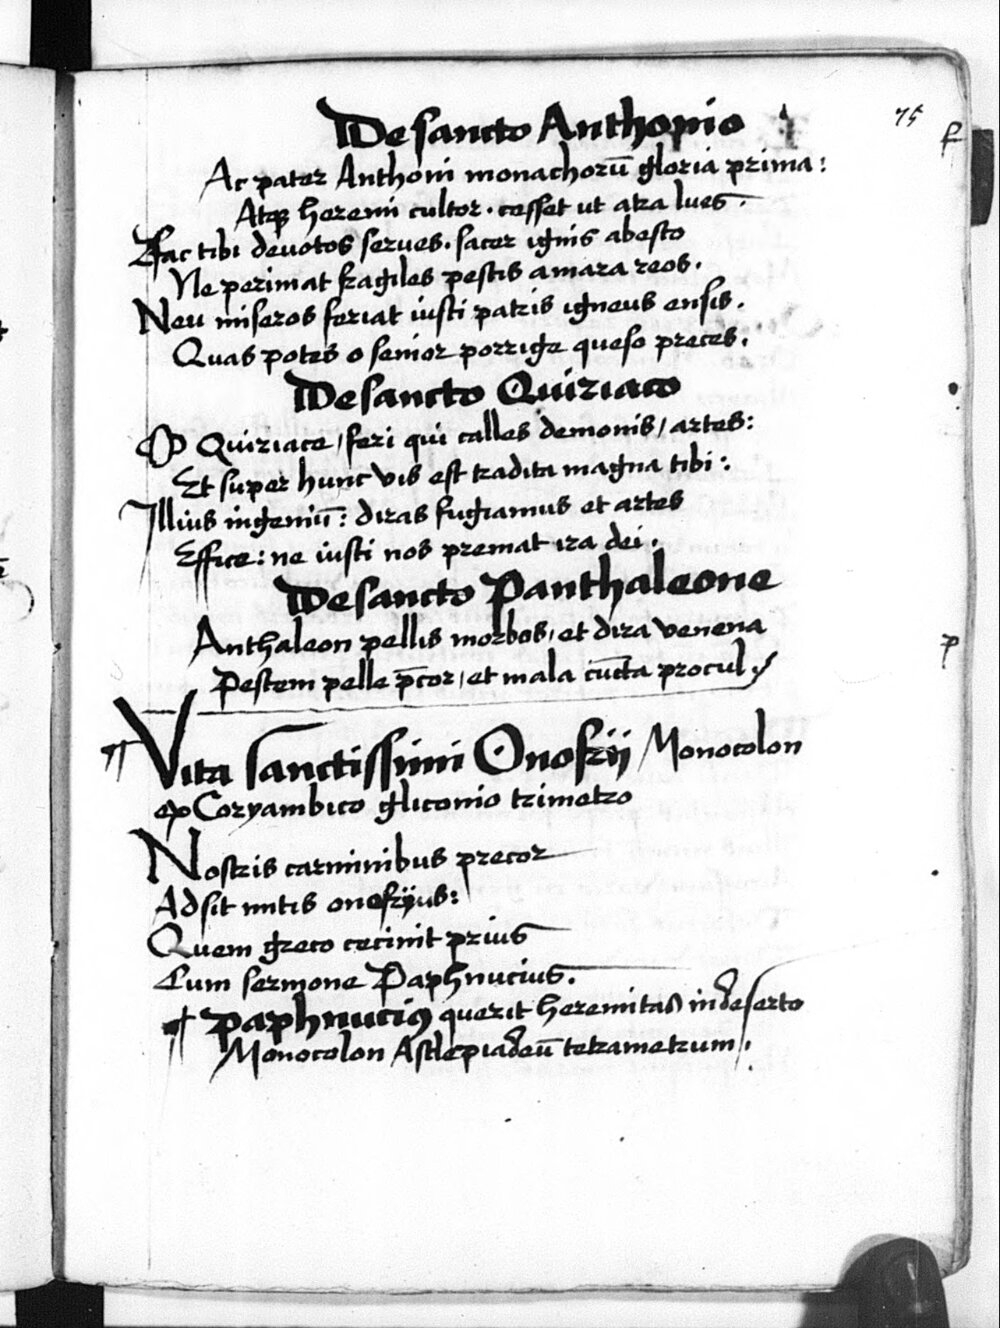 75
De sancto Anthonio
f
Ac pater Anthoni monachorū gloria prima:
Atqȝ heremi cultor. cesset ut atra lues.
Fac tibi devotos serves. sacer ignis abesto
Ne perimat fragiles pestis amara reos.
Neu miseros feriat iusti patris igneus ensis.
Quas potes o senior porrige queso preces.
De sancto Quiriaco
O Quiriace / feri qui calles demonis / artes:
Et super hunc vis est tradita magna tibi:.
Illius ingeniū: diras fugiamus et artes
Effice: ne iusti nos premat ira dei.
De sancto Panthaleone
p
Anthaleon pellis morbos, et dira venena
Pestem pelle p̄cor, et mala cūcta procul
¶ Vita sanctissimi Onofrij Monocolon
ex Coryambico gliconio trimetro
Nostris carminibus precor
Adsit mitis onofrijus:
Quem greco cecinit prius
Cum sermone Paphnucius.
¶ Paphnuciꝰ querit heremitas in deserto
Monocolon Asclepiadeū tetrametrum.